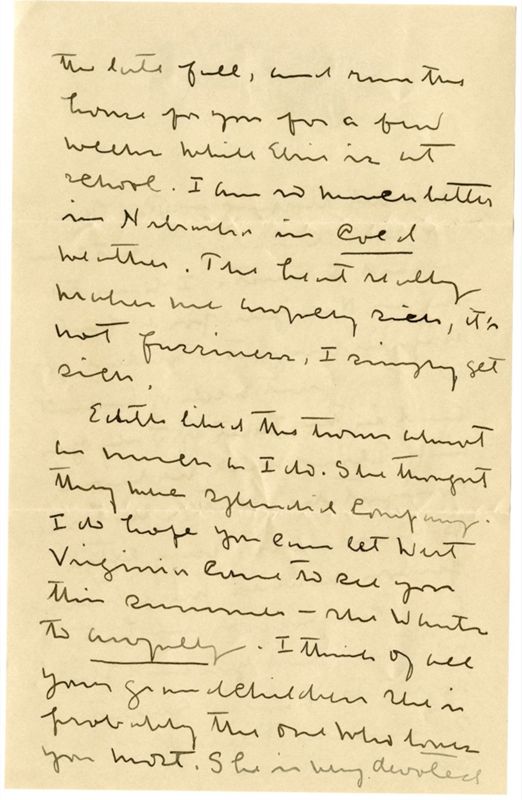 the late fall, and run the
house for you for a few
weeks while Elsie is at
school. I am so much better
in Nebraska in cold
weather. The heat really
makes me awfully sick, it's
not fussiness, I simply get
sick.
Edith liked the twins almost
as much as I do. She thought
they were splendid company.
I do hope you can let West
Virginia come to see you
this summer — she wants
to awfully. I think of all
your grandchildren she is
probably the one who loves
you most. She is very devoted